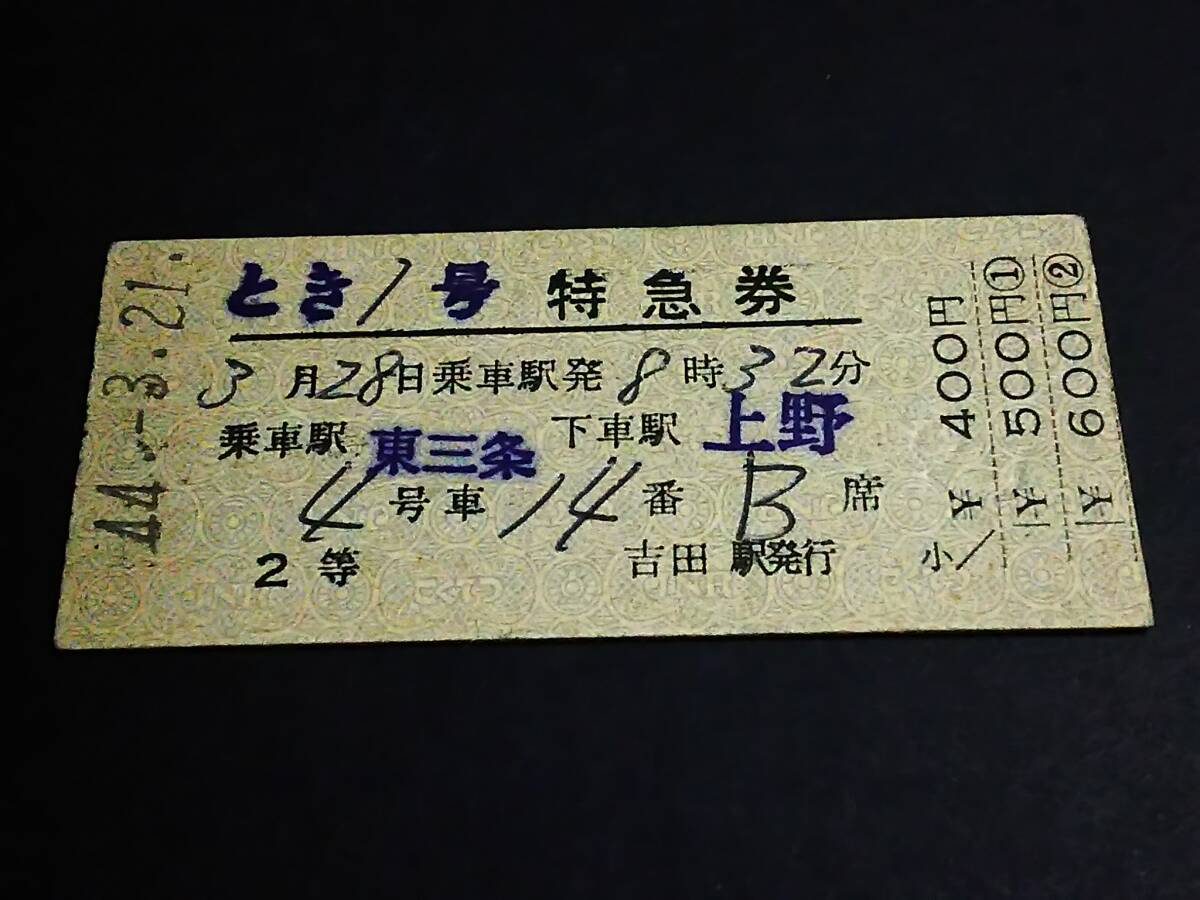 44.-3.21.
とき1号 特急券
3月28日乗車駅発8時32分
乗車駅 東三条 下車駅 上野
4号車14番B席
2等 吉田 駅発行
小/ ¥400円
¥500円①
¥600円②